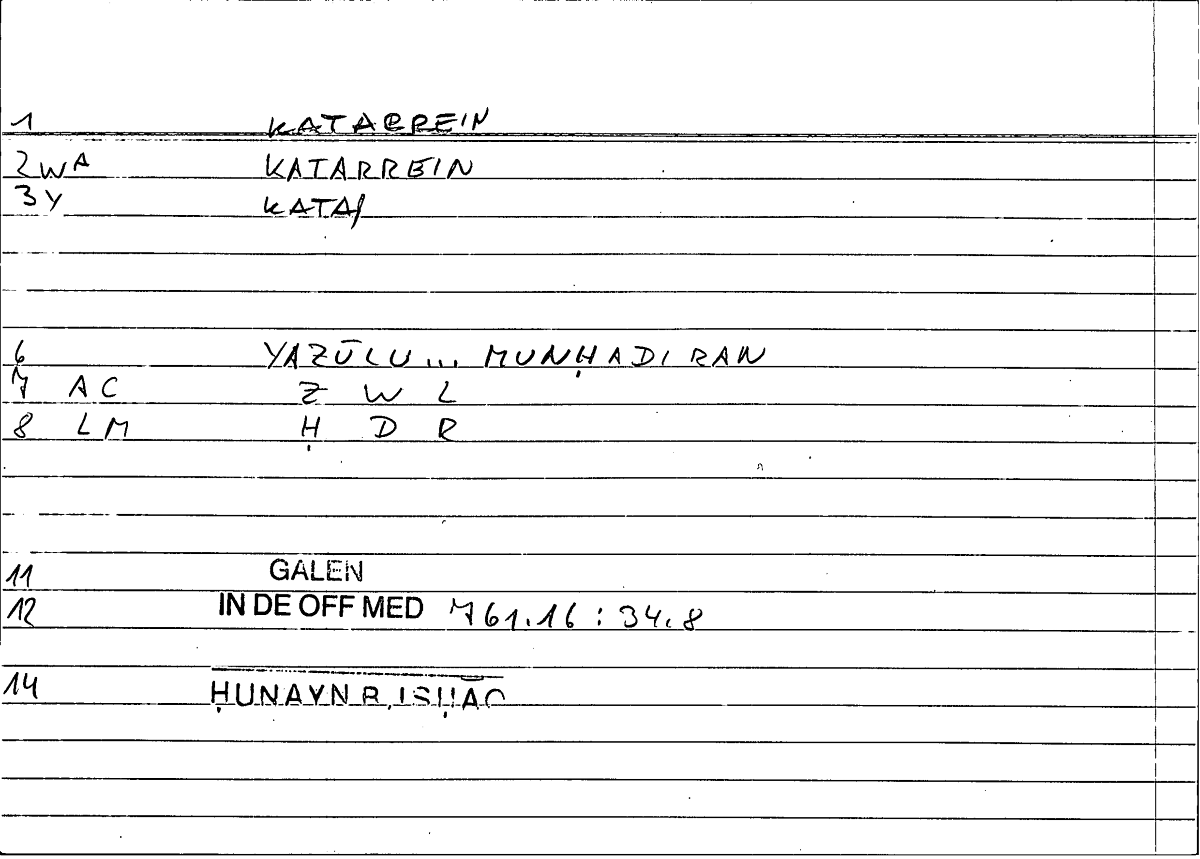 1 KATARREIN
2WA KATARREIN
3Y KATA/
6 YAZŪLU... MUNḤADIRAN
7 AC Z W L
8 LM Ḥ D R
11 GALEN
12 IN DE OFF MED 761.16 : 34.8
14 ḤUNAYN B. ISḤĀQ